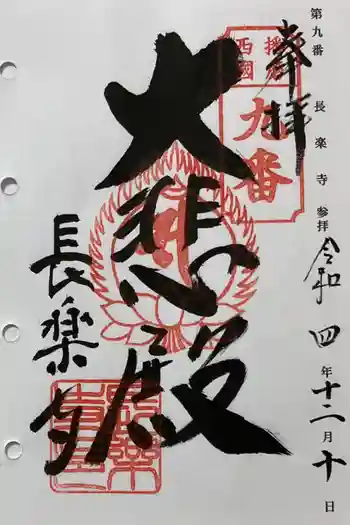 第九番 長楽寺 参拝 令和四年十二月十日
奉拝
播州
西國
九番
大悲殿
長楽寺
長楽
寺印